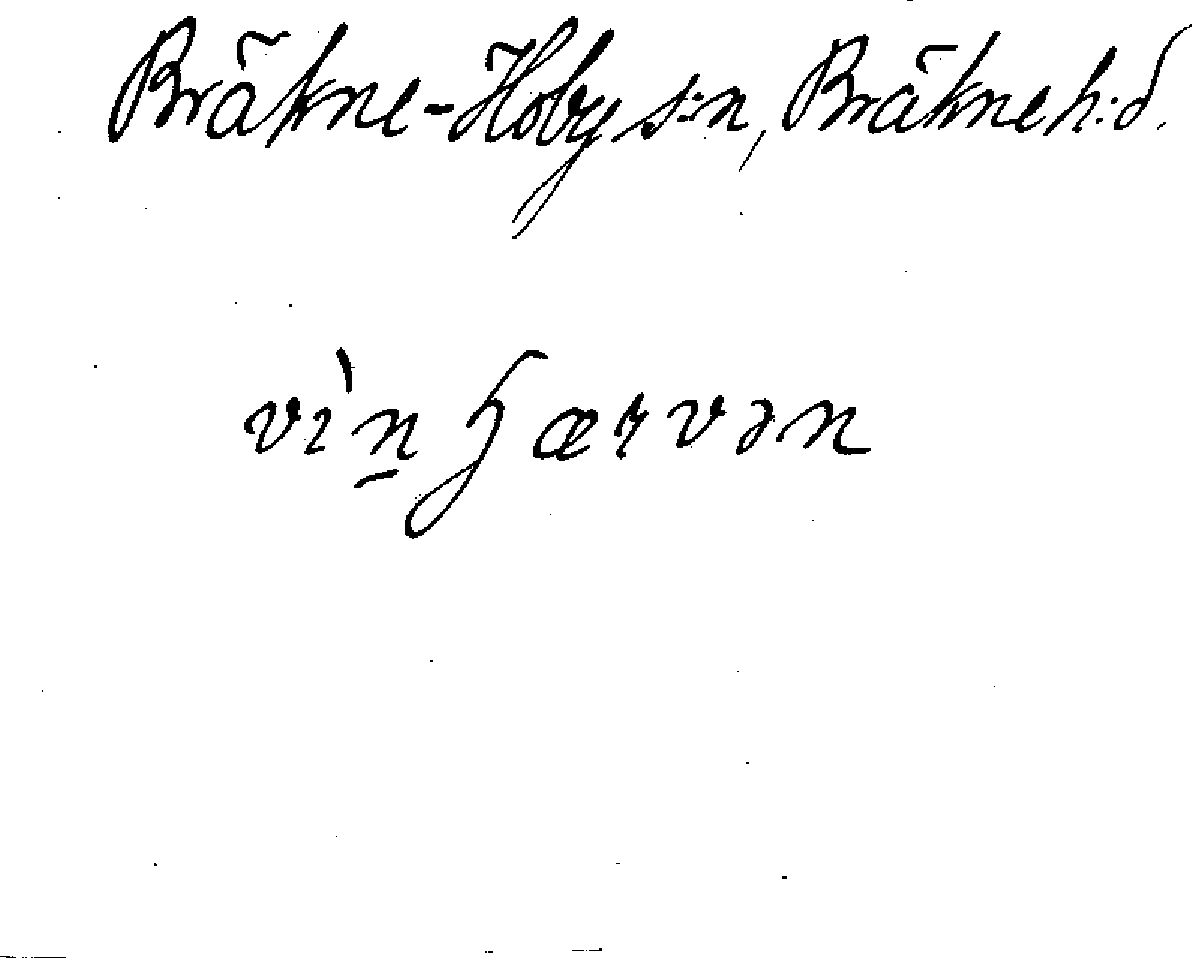 Bräkne-Hoby s:n, Bräkne h:d.
vìn̠hærvən